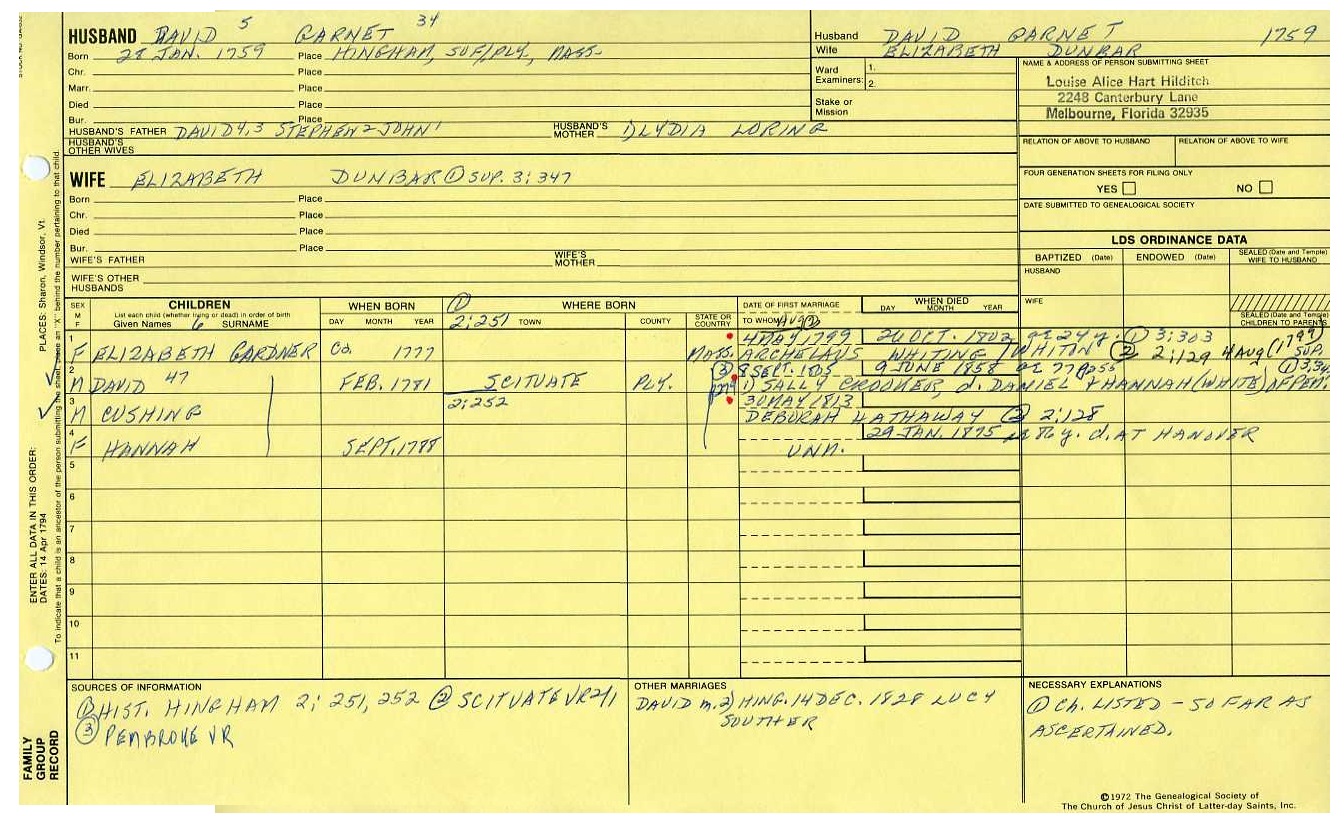 HUSBAND DAVID 5 GARNET 34
Born 28 JAN. 1759 Place HINGHAM, SUF/PLY, MASS.
Chr. Place
Marr. Place
Died Place
Bur. Place
HUSBAND'S FATHER DAVID 4,3 STEPHEN 2 JOHN 1 HUSBAND'S MOTHER LYDIA LORING
HUSBAND'S OTHER WIVES
Husband DAVID GARNET 1759
Wife ELIZABETH DUNBAR
Ward Examiners: 1.
2.
Stake or Mission
NAME & ADDRESS OF PERSON SUBMITTING SHEET
Louise Alice Hart Hilditch
2248 Canterbury Lane
Melbourne, Florida 32935
RELATION OF ABOVE TO HUSBAND RELATION OF ABOVE TO WIFE
FOUR GENERATION SHEETS FOR FILING ONLY
YES NO
DATE SUBMITTED TO GENEALOGICAL SOCIETY
WIFE ELIZABETH DUNBAR ① SUP. 3:347
Born Place
Chr. Place
Died Place
Bur. Place
WIFE'S FATHER WIFE'S MOTHER
WIFE'S OTHER HUSBANDS
LDS ORDINANCE DATA
BAPTIZED (Date) ENDOWED (Date) SEALED (Date and Temple) WIFE TO HUSBAND
HUSBAND
WIFE
SEALED (Date and Temple) CHILDREN TO PARENTS
SEX M F CHILDREN WHEN BORN ① WHERE BORN DATE OF FIRST MARRIAGE WHEN DIED
List each child (whether living or dead) in order of birth
Given Names 6 SURNAME DAY MONTH YEAR 2:251 TOWN COUNTY STATE OR COUNTRY TO WHOM AUG ② DAY MONTH YEAR
1 4 MAY, 1799 26 OCT. 1802 ae 24 y. ① 3:303
F ELIZABETH GARDNER Ca. 1777 MASS. ARCHELAUS WHITING / WHITON ② 2:129 4 AUG (1799) SUP.
2 ③ 8 SEPT. 1805 9 JUNE 1858 ae 77
M DAVID 47 FEB. 1781 SCITUATE PLY. 1) SALLY CROOKER, d. DANIEL & HANNAH (WHITE) OF PEM.
3 2:252 30 MAY 1813
M CUSHING DEBORAH HATHAWAY ② 2:128
4 29 JAN. 1875 d. AT HANOVER
F HANNAH SEPT. 1788 UNM.
5
6
7
8
9
10
11
SOURCES OF INFORMATION
① HIST. HINGHAM 2; 251, 252 ② SCITUATE VR 2/1
③ PEMBROKE VR
OTHER MARRIAGES
DAVID m. 2) HING. 14 DEC. 1828 LUCY
SOUTHER
NECESSARY EXPLANATIONS
① Ch. LISTED - SO FAR AS
ASCERTAINED.
©1972 The Genealogical Society of
The Church of Jesus Christ of Latter-day Saints, Inc.
PLACES: Sharon, Windsor, Vt.
ENTER ALL DATA IN THIS ORDER:
DATES: 14 Apr 1794
To indicate that a child is an ancestor of the person submitting the sheet, place an "X" behind the number pertaining to that child.
FAMILY
GROUP
RECORD